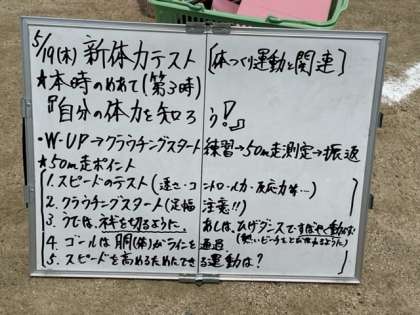 5/19(木) 新体力テスト [体つくり運動と関連]
★本時のめあて(第3時)
『自分の体力を知ろう!』
・W-UP→クラウチングスタート練習→50m走測定→振返
★50m走ポイント
1.スピードのテスト(速さ・コントロール力・反応力等…)
2.クラウチングスタート(足幅注意!!)
3.うでは、衤を切るように、あしは、ひげダンスですばやく動かす
(熱いビーチを
ように)
4.ゴールは胴(体)がラインを通過
5.スピードを高めるためにできる運動は?